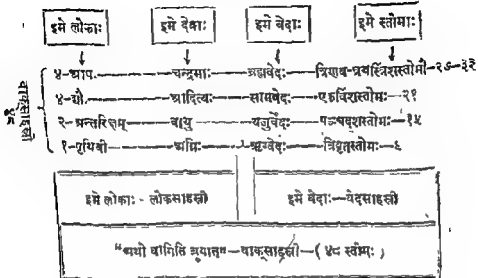 इमे लोकाः इमे देवाः इमे वेदाः इमे स्तोमाः
४-आपः चन्द्रमाः ब्रह्मवेदः त्रिणव-त्रयस्त्रिंशस्तोमौ-२७-३३
४-द्यौ आदित्यः सामवेदः एकविंशस्तोमः-२१
२-अन्तरिक्षम् वायु यजुर्वेदः पञ्चदशस्तोमः-१५
१-पृथिवी अग्निः ऋग्वेदः त्रिवृत्स्तोमः-६
वाक्साहस्री
४८
इमे लोकाः - लोकसाहस्री इमे वेदाः-वेदसाहस्री
"अथो वागिति ब्रूयात्"-वाक्साहस्री-(४८ स्तोमः)